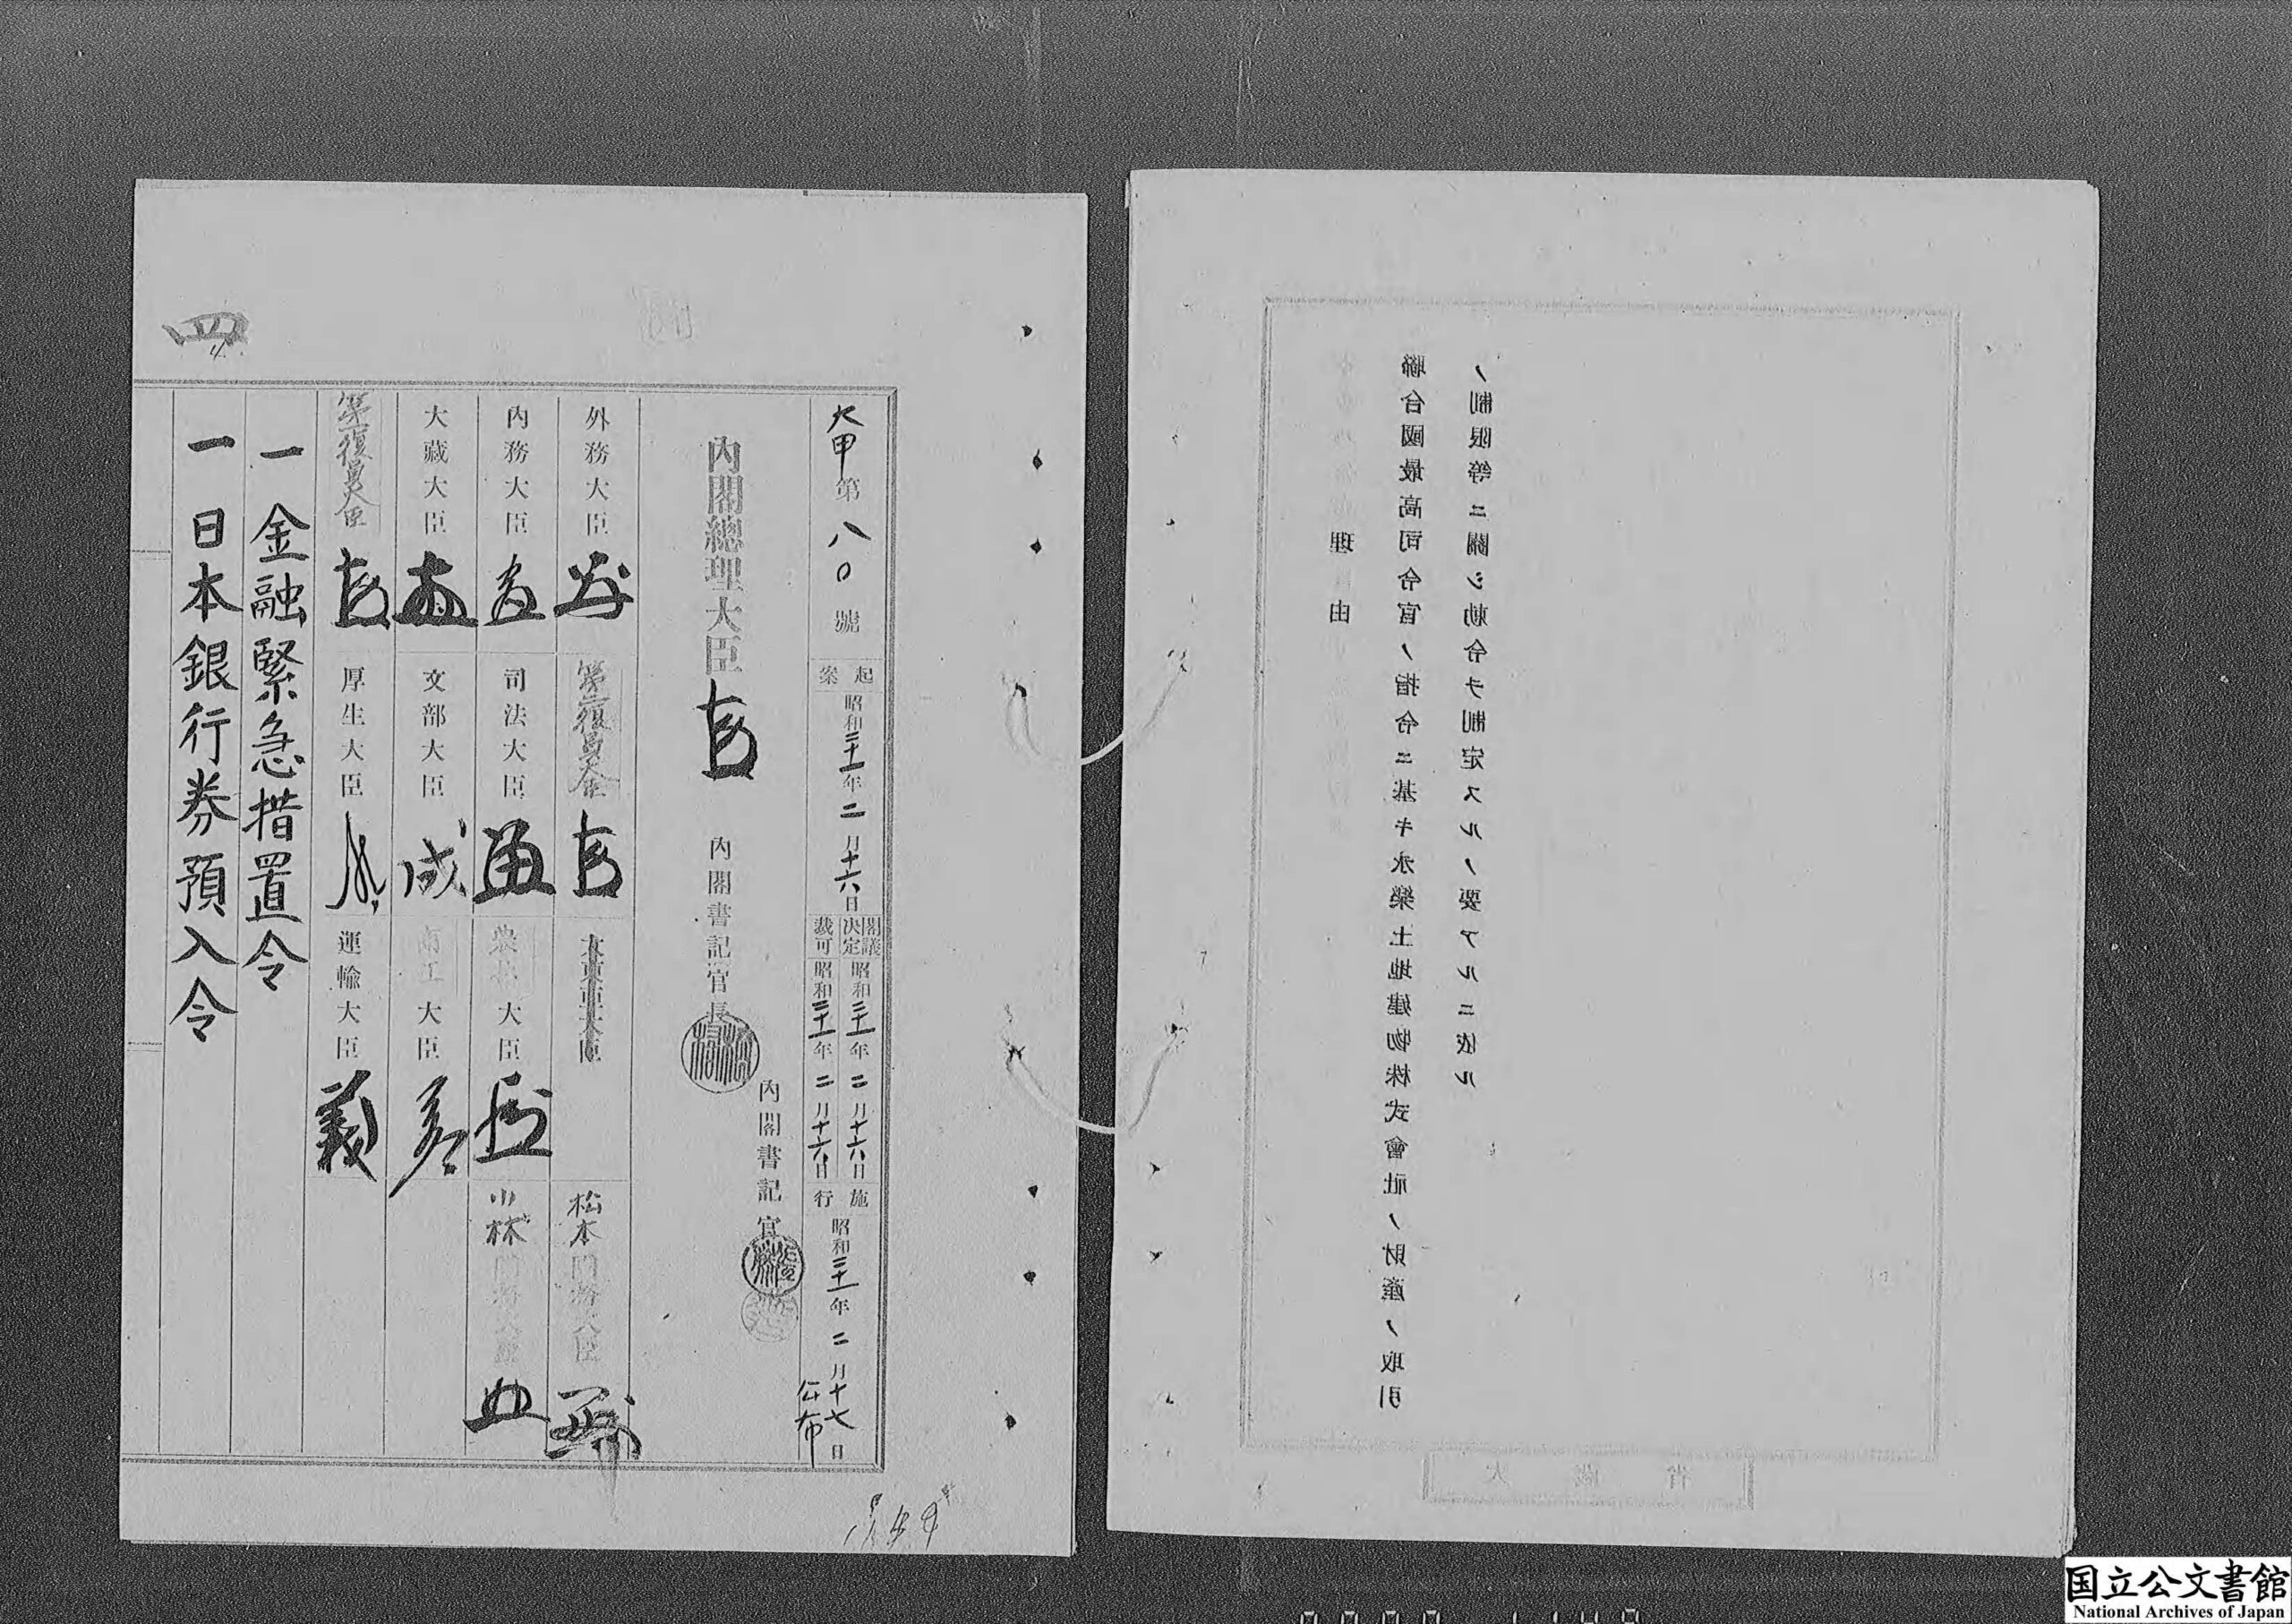 理由
聯合國最高司令官ノ指令ニ基キ永樂土地建物株式會社ノ財産ノ取引
ノ制限等ニ關シ勅令ヲ制定スルノ要アルニ依ル
大藏省
四
4
大甲第八〇號
起案
昭和二十一年二月十六日
閣議決定
昭和二十一年二月十六日
裁可
昭和二十一年二月十六日
施行
昭和二十一年二月十七日
公布
内閣總理大臣
内閣書記官長
内閣書記官
外務大臣
第二復員大臣
大東亞大臣
松本國務大臣
内務大臣
司法大臣
農林大臣
小林國務大臣
大藏大臣
文部大臣 成
商工大臣
第一復員大臣
厚生大臣
運輸大臣 義
一金融緊急措置令
一日本銀行券預入令
国立公文書館
National Archives of Japan